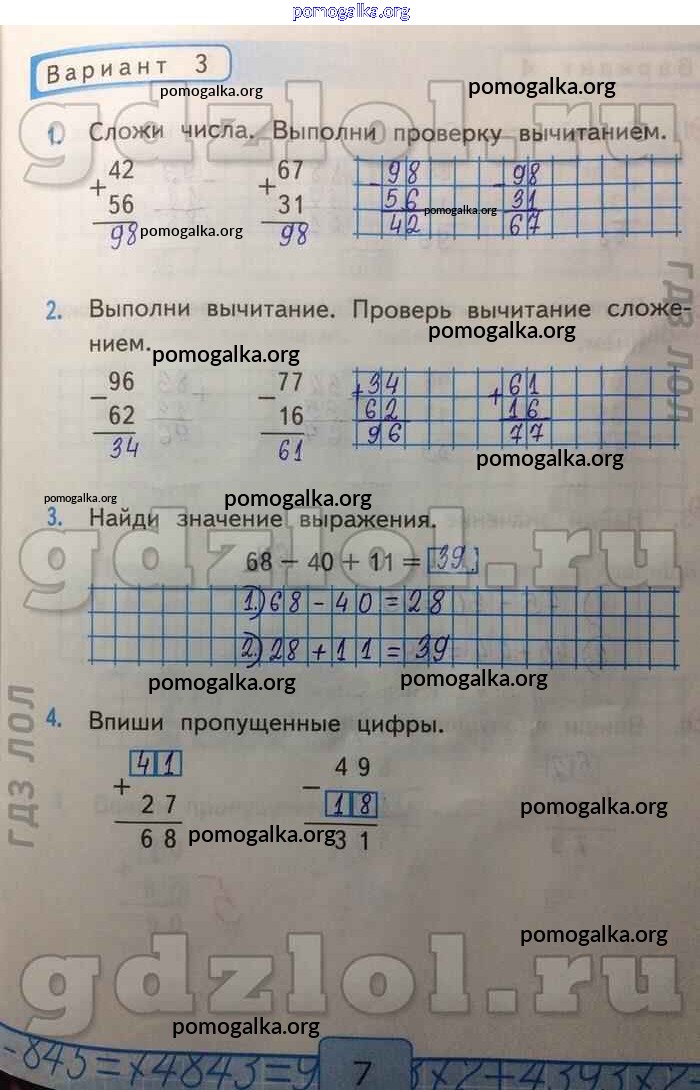 pomogalka.org
Вариант 3
pomogalka.org pomogalka.org
gdzlol.ru
1. Сложи числа. Выполни проверку вычитанием.
+ 42 + 67 - 98 - 98
56 31 56 31
98 pomogalka.org 98 42 pomogalka.org 67
гдз лол
2. Выполни вычитание. Проверь вычитание сложе-
нием. pomogalka.org pomogalka.org
− 96 − 77 + 34 + 61
62 16 62 16
34 61 96 77
pomogalka.org
pomogalka.org pomogalka.org
3. Найди значение выражения.
gdzlol.ru
68 − 40 + 11 = 39.
1.) 68 - 40 = 28
2.) 28 + 11 = 39
pomogalka.org pomogalka.org
гдз лол
4. Впиши пропущенные цифры.
+ 41 − 49
27 18
68 pomogalka.org 31
pomogalka.org
pomogalka.org
gdzlol.ru
pomogalka.org
-845=x4843=9
7
3x2+4393x2